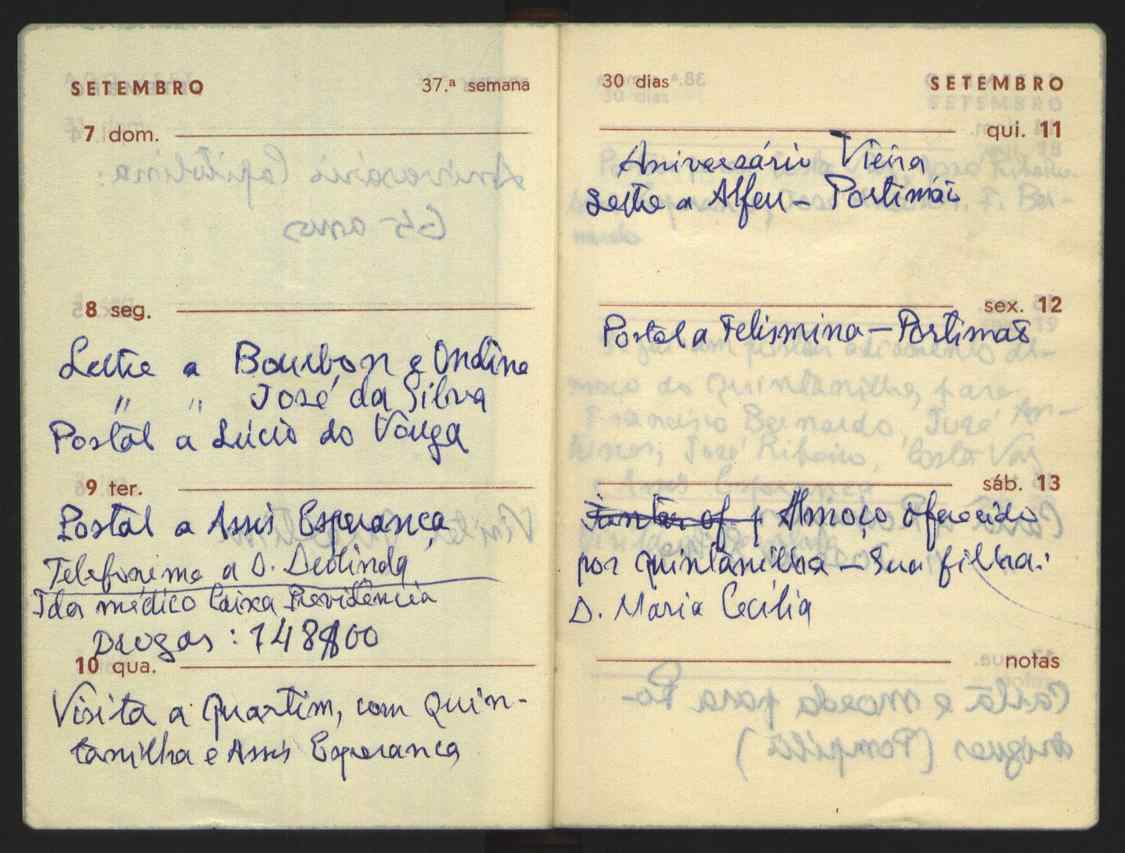 SETEMBRO 37.ª semana
7 dom.
8 seg.
Lettre a Bourbon e Ondina
" " José da Silva
Postal a Lúcio do Vouga
9 ter.
Postal a Assis Esperança
Telefonema a D. Deolinda
Ida médico Caixa Previdência
Drogas: 148$00
10 qua.
Visita a Quartim, com Quin-
tanilha e Assis Esperança
30 dias SETEMBRO
qui. 11
Aniversário Vieira
Lettre a Alfeu - Portimão
sex. 12
Postal a Felismina - Portimão
sáb. 13
Jantar of Almoço oferecido
por Quintanilha - Sua filha:
D. Maria Cecília
notas